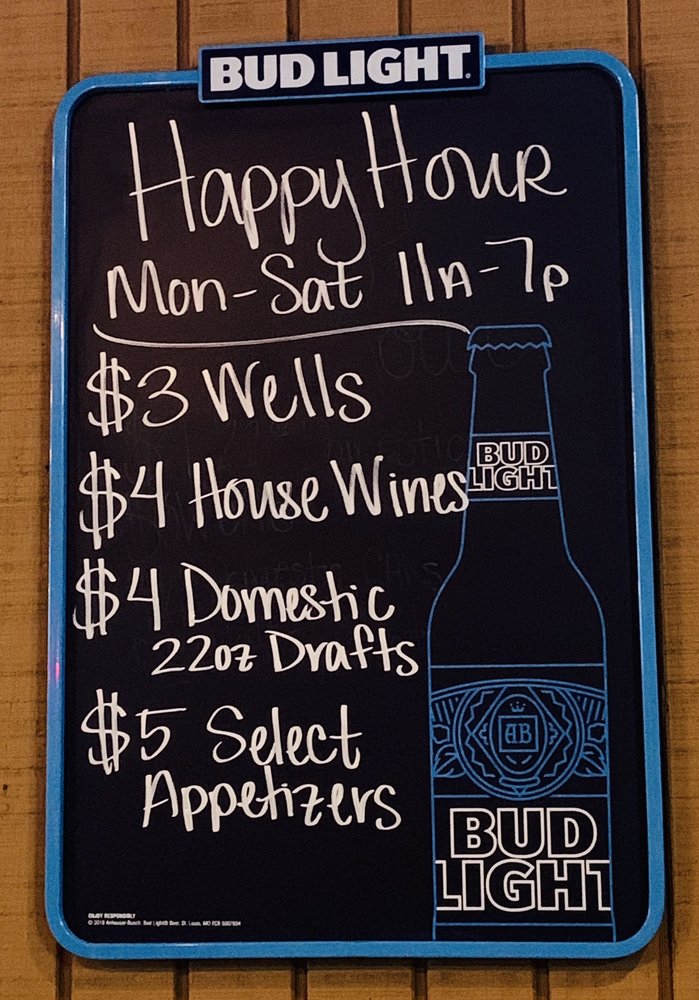 BUD LIGHT
Happy Hour
Mon-Sat 11A-7p
$3 Wells
$4 House Wines
$4 Domestic
22oz Drafts
$5 Select
Appetizers
BUD
LIGHT
AB
BUD
LIGHT
ENJOY RESPONSIBLY
© 2018 Anheuser-Busch, Bud Light® Beer, St. Louis, MO